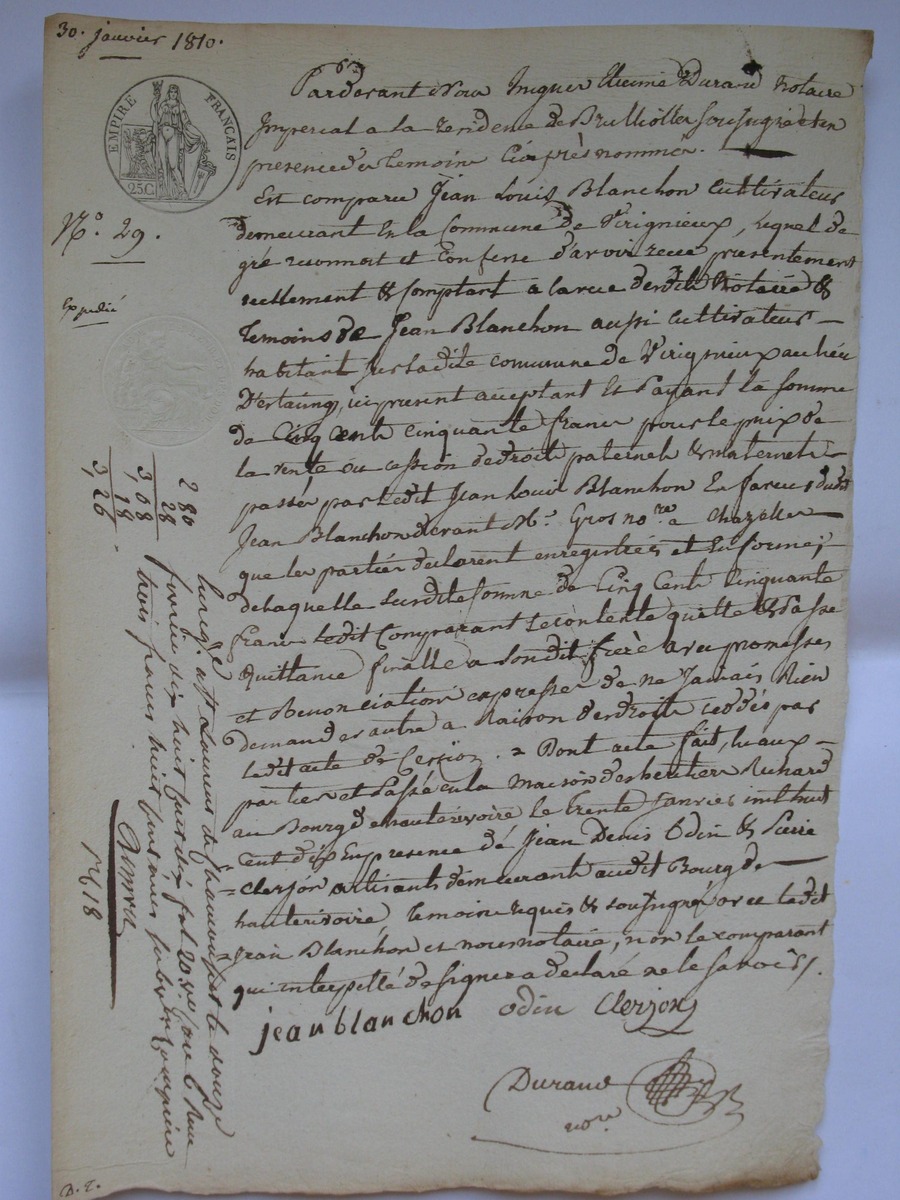 30. janvier 1810.
EMPIRE FRANÇAIS
25C
N.° 29.
Expedié
Pardevant Nous Durand Notaire
Imperial a la residence de Brulliolles soussigné et en
presence des temoins ci après nommés.
Est comparu Jean Louis Blanchon Cultivateur
demeurant En la Commune de Virignieux, lequel de
gré reconnoit et Confesse d'avoir recu presentement
reellement & Comptant a la vue desdits Notaire &
temoins de Jean Blanchon aussi Cultivateur
habitant sur ladite commune de Virignieux au lieu
ici present acceptant Et Payant la somme
de Cinq Cents cinquante francs pour le prix de
la vente ou cession de droits paternels & maternels
passée par ledit Jean Louis Blanchon En faveur dudit
Jean Blanchon devant M.e Gros no.re a Chazelles
que les parties declarent enregistrées et En forme;
de laquelle susdite somme de Cinq Cents Cinquante
francs ledit Comparant se contente quitte & Passe
Quittance finalle a sondit frère avec promesses
et Renonciations expresses de ne Jamais Rien
demander autre a Raison des droits ceddés par
ledit acte de Cession. Dont acte fait, lu aux
parties et Passé en la Maison des heritiers
au Bourg de hauterivoire le trente Janvier mil huit
Cent dix En presence de Jean Denis Odin & Pierre
Clerjon artisants demeurant audit Bourg de
hauterivoire temoins requis & soussignés avec ledit
Jean Blanchon et nous notaire, non le comparant
qui interpellé de signer a declaré ne le savoir.
jean blanchon odin Clerjon
Durand
no.re
2 80
28
3,08
18
3,26
Enregé a St Laurent de Chamousset le douze
trois francs huit centimes
1718
D. E.